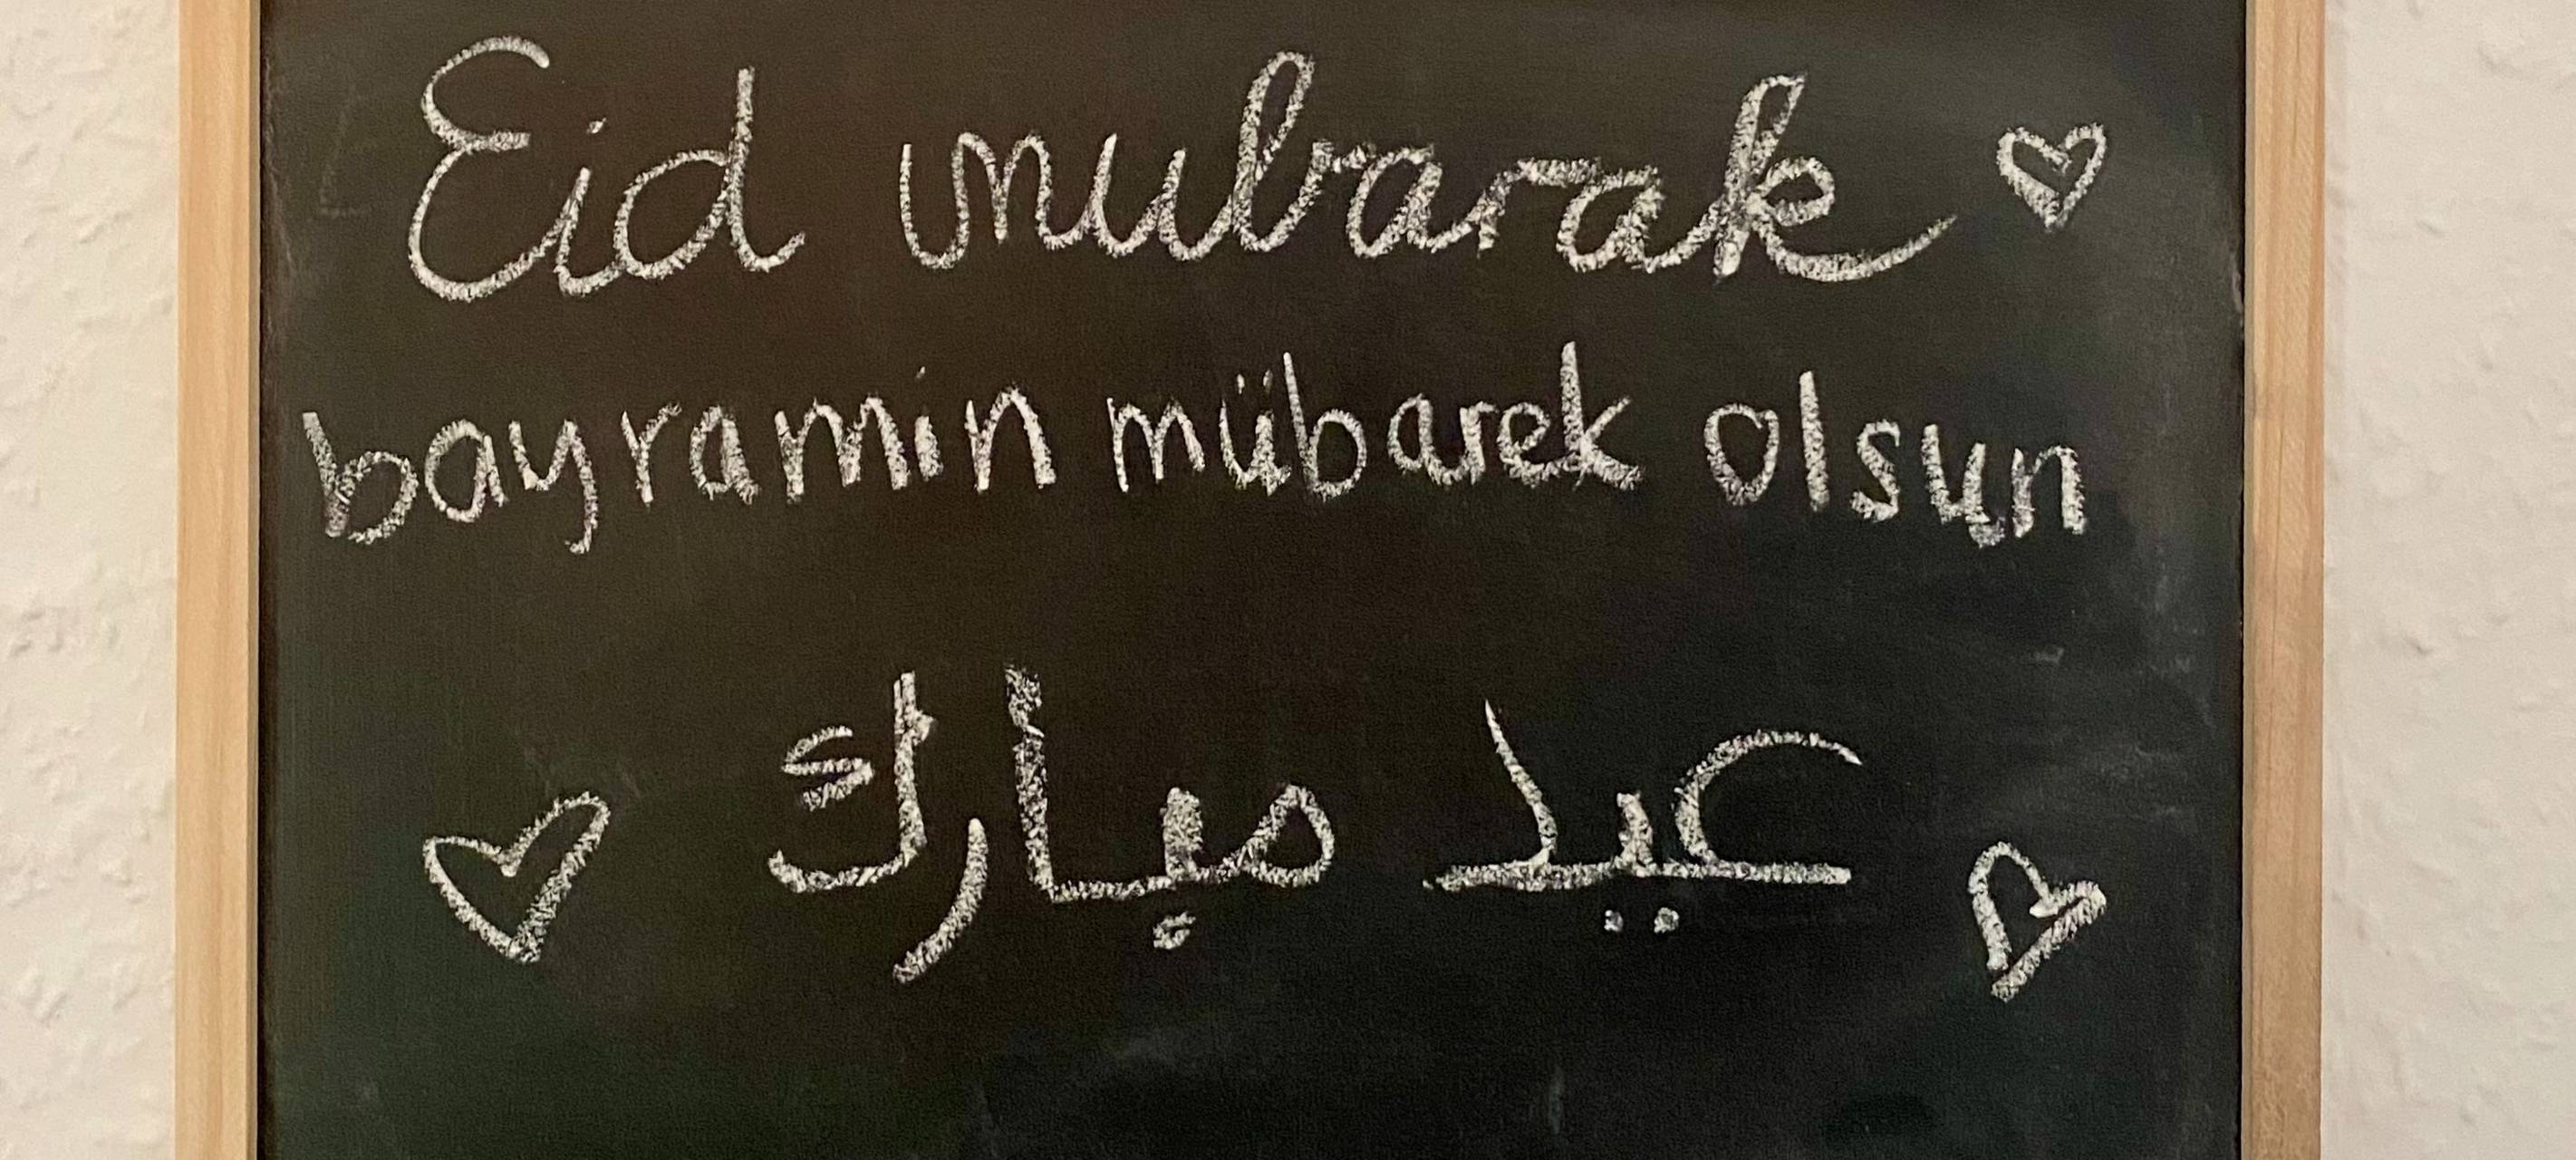 Eid mubarak
bayramin mübarek olsun
عيد مبارك